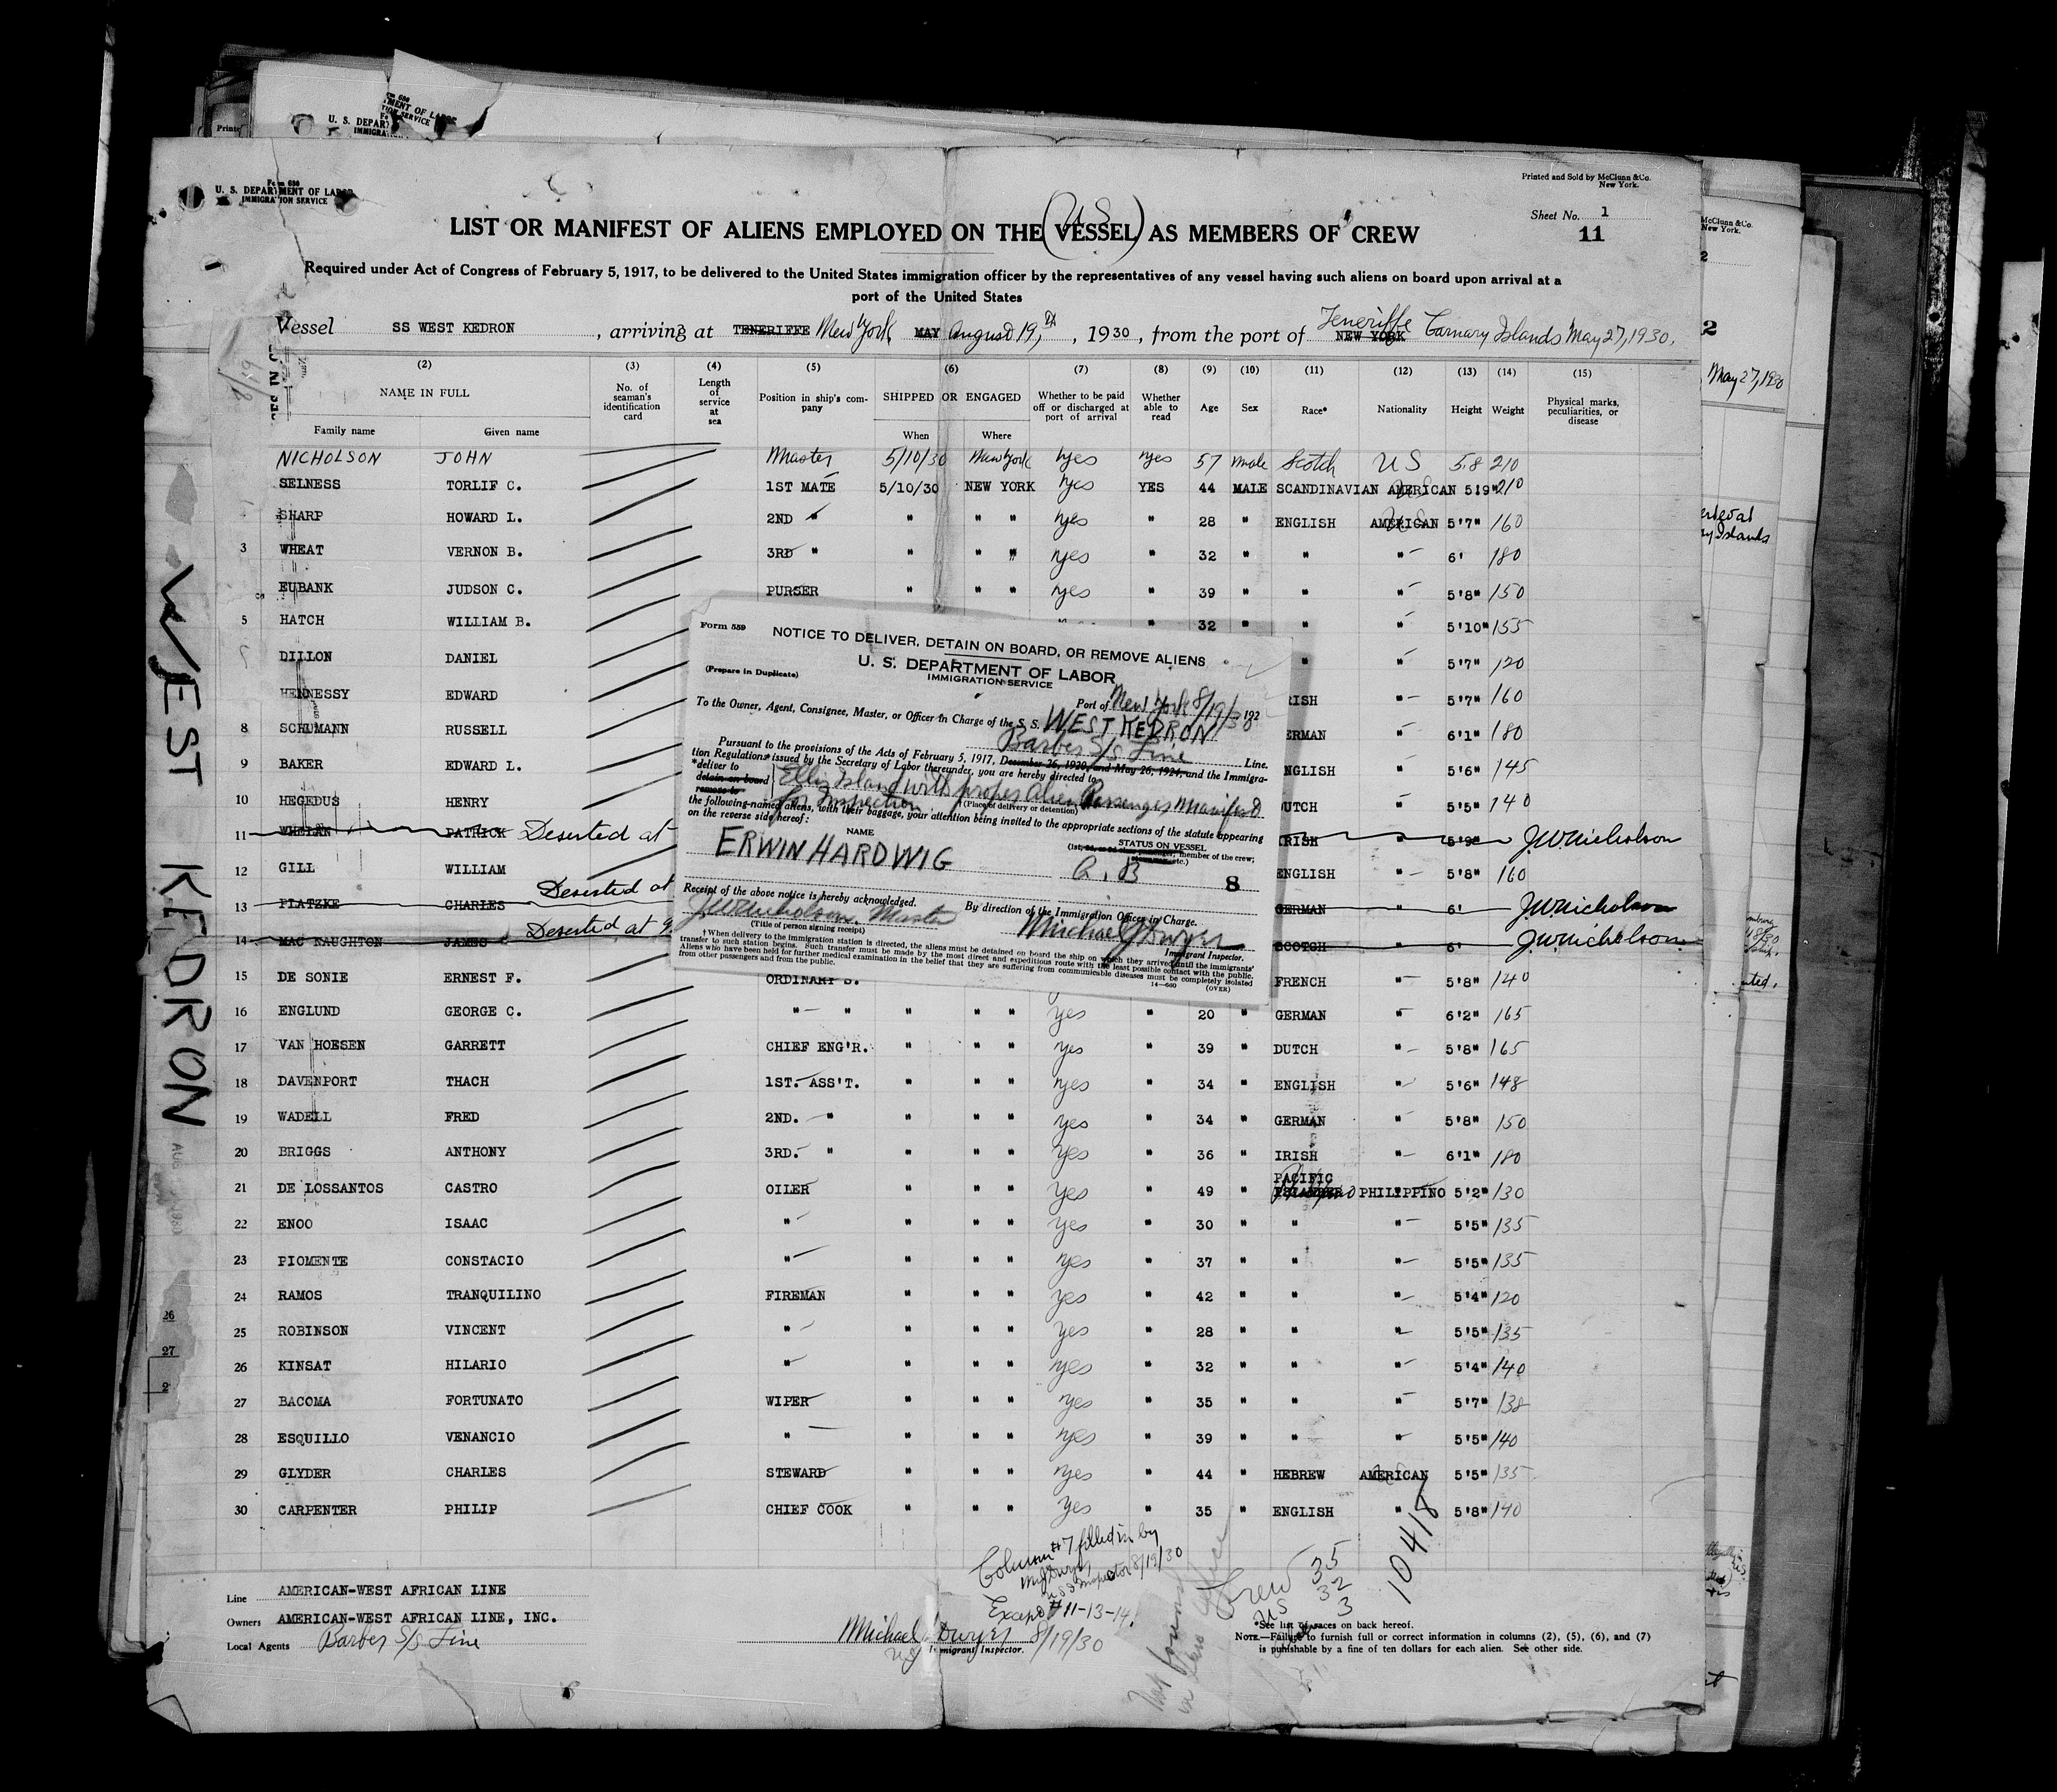 Form 680
U. S. DEPARTMENT OF LABOR
IMMIGRATION SERVICE
Printed and Sold by McClunn & Co.
New York.
Sheet No. 1
11
US
LIST OR MANIFEST OF ALIENS EMPLOYED ON THE (VESSEL) AS MEMBERS OF CREW
Required under Act of Congress of February 5, 1917, to be delivered to the United States immigration officer by the representatives of any vessel having such aliens on board upon arrival at a
port of the United States
Vessel SS WEST KEDRON, arriving at TENERIFFE New York MAY August 19, th, 1930, from the port of NEW YORK Teneriffe Carnary Islands May 27, 1930.
(2) (3) (4) (5) (6) (7) (8) (9) (10) (11) (12) (13) (14) (15)
NAME IN FULL
Family name Given name
No. of seaman's identification card
Length of service at sea
Position in ship's company
SHIPPED OR ENGAGED
When Where
Whether to be paid off or discharged at port of arrival
Whether able to read
Age Sex Race* Nationality Height Weight
Physical marks, peculiarities, or disease
NICHOLSON JOHN Master 5/10/30 New York yes yes 57 male Scotch US 5.8 210
SELNESS TORLIF C. 1ST MATE 5/10/30 NEW YORK yes YES 44 MALE SCANDINAVIAN AMERICAN 5'9" 210
SHARP HOWARD L. 2ND " " " " yes " 28 " ENGLISH AMERICAN 5'7" 160
3 WHEAT VERNON B. 3RD " " " " yes " 32 " " " 6' 180
EUBANK JUDSON C. PURSER " " " yes " 39 " " " 5'8" 150
5 HATCH WILLIAM B. " 32 " " " 5'10" 155
DILLON DANIEL " " 5'7" 120
HENNESSY EDWARD RISH " 5'7" 160
8 SCHUMANN RUSSELL ERMAN " 6'1" 180
9 BAKER EDWARD L. NGLISH " 5'6" 145
10 HEGEDUS HENRY UTCH " 5'5" 140
11 WHELAN PATRICK Deserted at RISH " 5'9" J.W. Nicholson
12 GILL WILLIAM ENGLISH " 5'8" 160
13 PLATZKE CHARLES Deserted at GERMAN " 6' J.W. Nicholson
14 MAC NAUGHTON JAMES Deserted at SCOTCH " 6' J.W. Nicholson
15 DE SONIE ERNEST F. ORDINARY S. FRENCH " 5'8" 140
16 ENGLUND GEORGE C. " " " " " yes " 20 " GERMAN " 6'2" 165
17 VAN HOESEN GARRETT CHIEF ENG'R. " " " yes " 39 " DUTCH " 5'8" 165
18 DAVENPORT THACH 1ST. ASS'T. " " " yes " 34 " ENGLISH " 5'6" 148
19 WADELL FRED 2ND. " " " " yes " 34 " GERMAN " 5'8" 150
20 BRIGGS ANTHONY 3RD. " " " " yes " 36 " IRISH " 6'1" 180
21 DE LOSSANTOS CASTRO OILER " " " yes " 49 " PACIFIC ISLANDER PHILIPPINO 5'2" 130
22 ENOO ISAAC " " " " yes " 30 " " " 5'5" 135
23 PIOMENTE CONSTACIO " " " " yes " 37 " " " 5'5" 135
24 RAMOS TRANQUILINO FIREMAN " " " yes " 42 " " " 5'4" 120
25 ROBINSON VINCENT " " " " yes " 28 " " " 5'5" 135
26 KINSAT HILARIO " " " " yes " 32 " " " 5'4" 140
27 BACOMA FORTUNATO WIPER " " " yes " 35 " " " 5'7" 138
28 ESQUILLO VENANCIO " " " " yes " 39 " " " 5'5" 140
29 GLYDER CHARLES STEWARD " " " yes " 44 " HEBREW AMERICAN 5'5" 135
30 CARPENTER PHILIP CHIEF COOK " " " yes " 35 " ENGLISH " 5'8" 140
Form 559
NOTICE TO DELIVER, DETAIN ON BOARD, OR REMOVE ALIENS
(Prepare in Duplicate)
U. S. DEPARTMENT OF LABOR
IMMIGRATION SERVICE
Port of New York 8/19/30 192
To the Owner, Agent, Consignee, Master, or Officer in Charge of the S. S. WEST KEDRON
Barber S/S Line Line.
Pursuant to the provisions of the Acts of February 5, 1917, December 26, 1920, and May 26, 1924, and the Immigra-
tion Regulations issued by the Secretary of Labor thereunder, you are hereby directed to
*deliver to
detain on board
remove to
Ellis Island with proper Alien Passenger Manifest
for Inspection
†(Place of delivery or detention)
the following-named aliens, with their baggage, your attention being invited to the appropriate sections of the statute appearing
on the reverse side hereof:
NAME
STATUS ON VESSEL
member of the crew;
etc.)
ERWIN HARDWIG A. B
8
Receipt of the above notice is hereby acknowledged.
By direction of the Immigration Officer in Charge.
J.W. Nicholson, Master
(Title of person signing receipt)
Michael J Dwyer
Immigrant Inspector.
†When delivery to the immigration station is directed, the aliens must be detained on board the ship on which they arrived until the immigrants'
transfer to such station begins. Such transfer must be made by the most direct and expeditious route with the least possible contact with the public.
Aliens who have been held for further medical examination in the belief that they are suffering from communicable diseases must be completely isolated
from other passengers and from the public.
14—660 (OVER)
WEST KEDRON
Column #7 filled in by
8/19/30
Except #11-13-14.
Line AMERICAN-WEST AFRICAN LINE
Owners AMERICAN-WEST AFRICAN LINE, INC.
Local Agents Barber S/S Line
Michael J Dwyer 8/19/30
Immigrant Inspector.
Crew 35
US 32
3
10418
*See list of races on back hereof.
NOTE.—Failure to furnish full or correct information in columns (2), (5), (6), and (7)
is punishable by a fine of ten dollars for each alien. See other side.
May 27, 1930
26
27